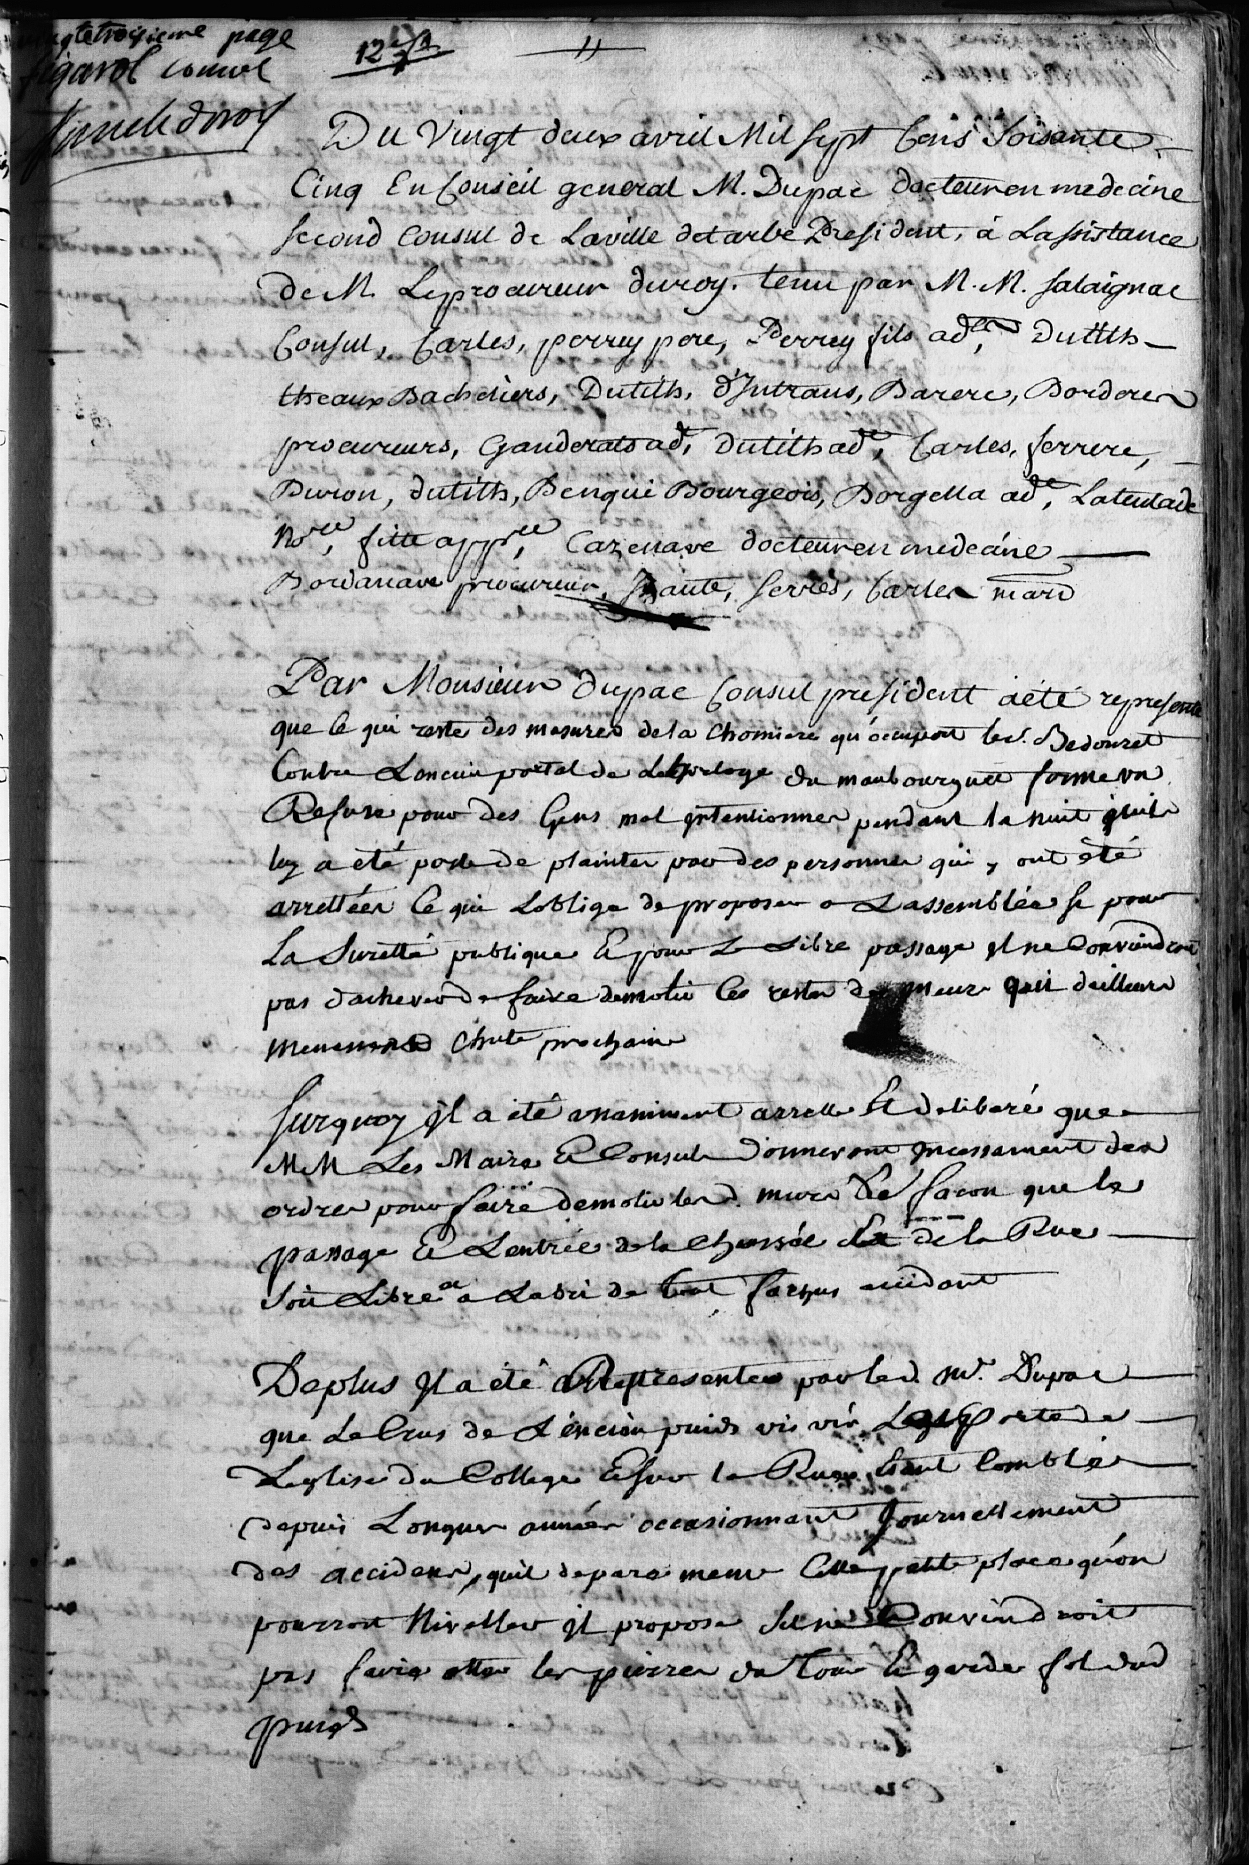 vingt troisieme page
figarol consul
12
Du Vingt deux avril Mil Sept Cens Soisante
Cinq En Conseil general M. Dupac docteur en medecine
Second Consul de Laville detarbe President, à Lassistance
de M. Leprocureur duroy. tenu par M. M. salaignac
Consul, Carles, perrey pere, Perrey fils ad, Dutith
theaux Bacheliers, Dutith, d'Intrans, Barere, Bordere
procureurs, Ganderats ad, Dutith ad, Carles, ferrere,
Duron, dutith, Benqué Bourgeois, Borgella ad, Latentade
Nore, fitte appre, Cazenave docteur en medecine
Bordanave procureur, Serres, Carles mard
Par Monsieur dupac Consul president a été represente
que le qui reste des masures de la Chomiere qu'occupoit le s. Bedouret
Contre Lancien portal de Lhorloge du maubourguet forme un
Refuse pour des Gens mal intentionnes pendant la nuit quil
luy a été porté de plaintes par des personnes qui y ont été
arrettées Ce qui Loblige de proposer a Lassemblée se pour
La Suretté publique E pour Le Libre passage il ne Conviendroit
pas dachever de faire demolir les restes de meur qui dailleurs
menassent Chute prochaine
Surquoy Il a été unaniment arrette Et deliberé que
MM Les Maire E Consuls donneront incessament des
ordres pour faire demolir les d. murs de facon que le
passage E Lentrée de la Chaussée de la Rue
Soit Libre a Labri de tout facheus accidant
Deplus Il a été Representes par led. mr. Dupac
que Le Crus de L'encien puids vis vis La Porte de
Leglise du College E sur la Rue, Etant Comblés
depuis Longues années occasionnant Journellement
des accidens, quil depare meme Cette petite place quon
pourroit Niveller il propose Sil ne Conviendroit
pas faire otter les pierres du tour E garde fol dud
puids